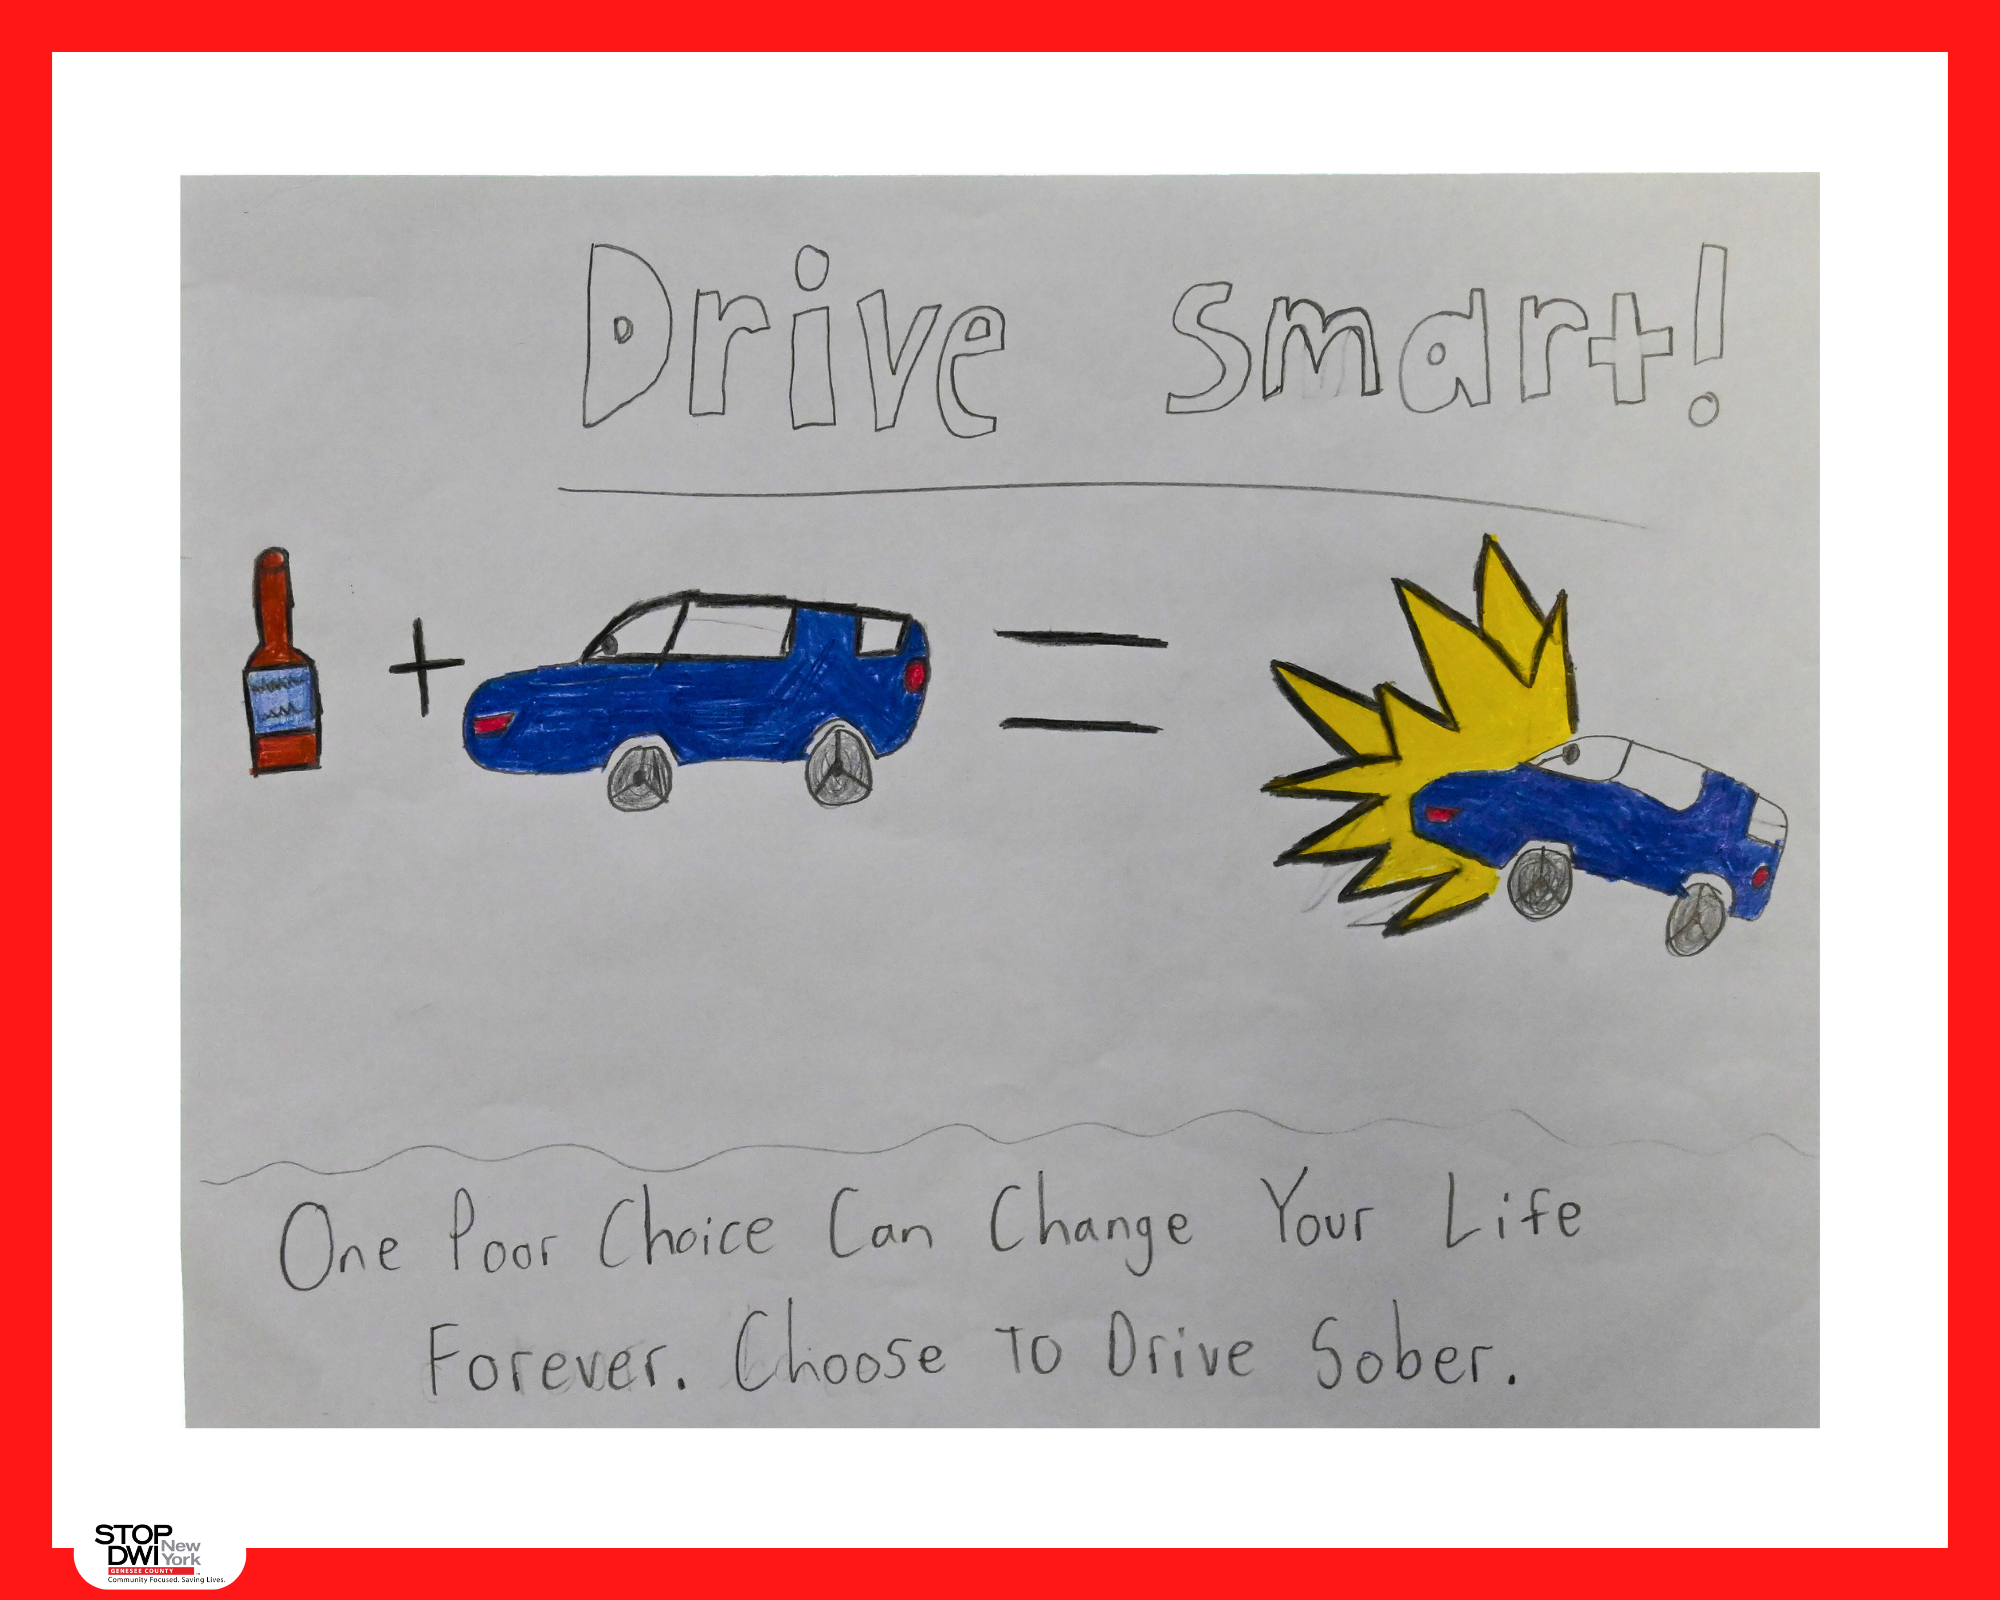 Drive Smart!
+
=
One Poor Choice Can Change Your Life
Forever. Choose To Drive Sober.
STOP
DWI New York
GENESEE COUNTY
Community Focused. Saving Lives.